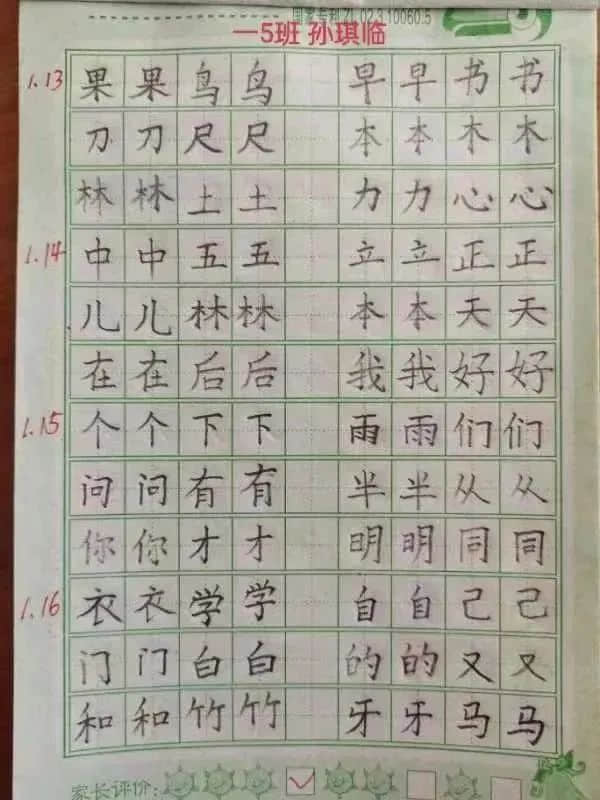 国家专利 ZL 02 3 10060.5
一5班 孙琪临
1.13 果 果 鸟 鸟 早 早 书 书
刀 刀 尺 尺 本 本 木 木
林 林 土 土 力 力 心 心
1.14 中 中 五 五 立 立 正 正
儿 儿 林 林 本 本 天 天
在 在 后 后 我 我 好 好
1.15 个 个 下 下 雨 雨 们 们
问 问 有 有 半 半 从 从
你 你 才 才 明 明 同 同
1.16 衣 衣 学 学 自 自 己 己
门 门 白 白 的 的 又 又
和 和 竹 竹 牙 牙 马 马
家长评价: